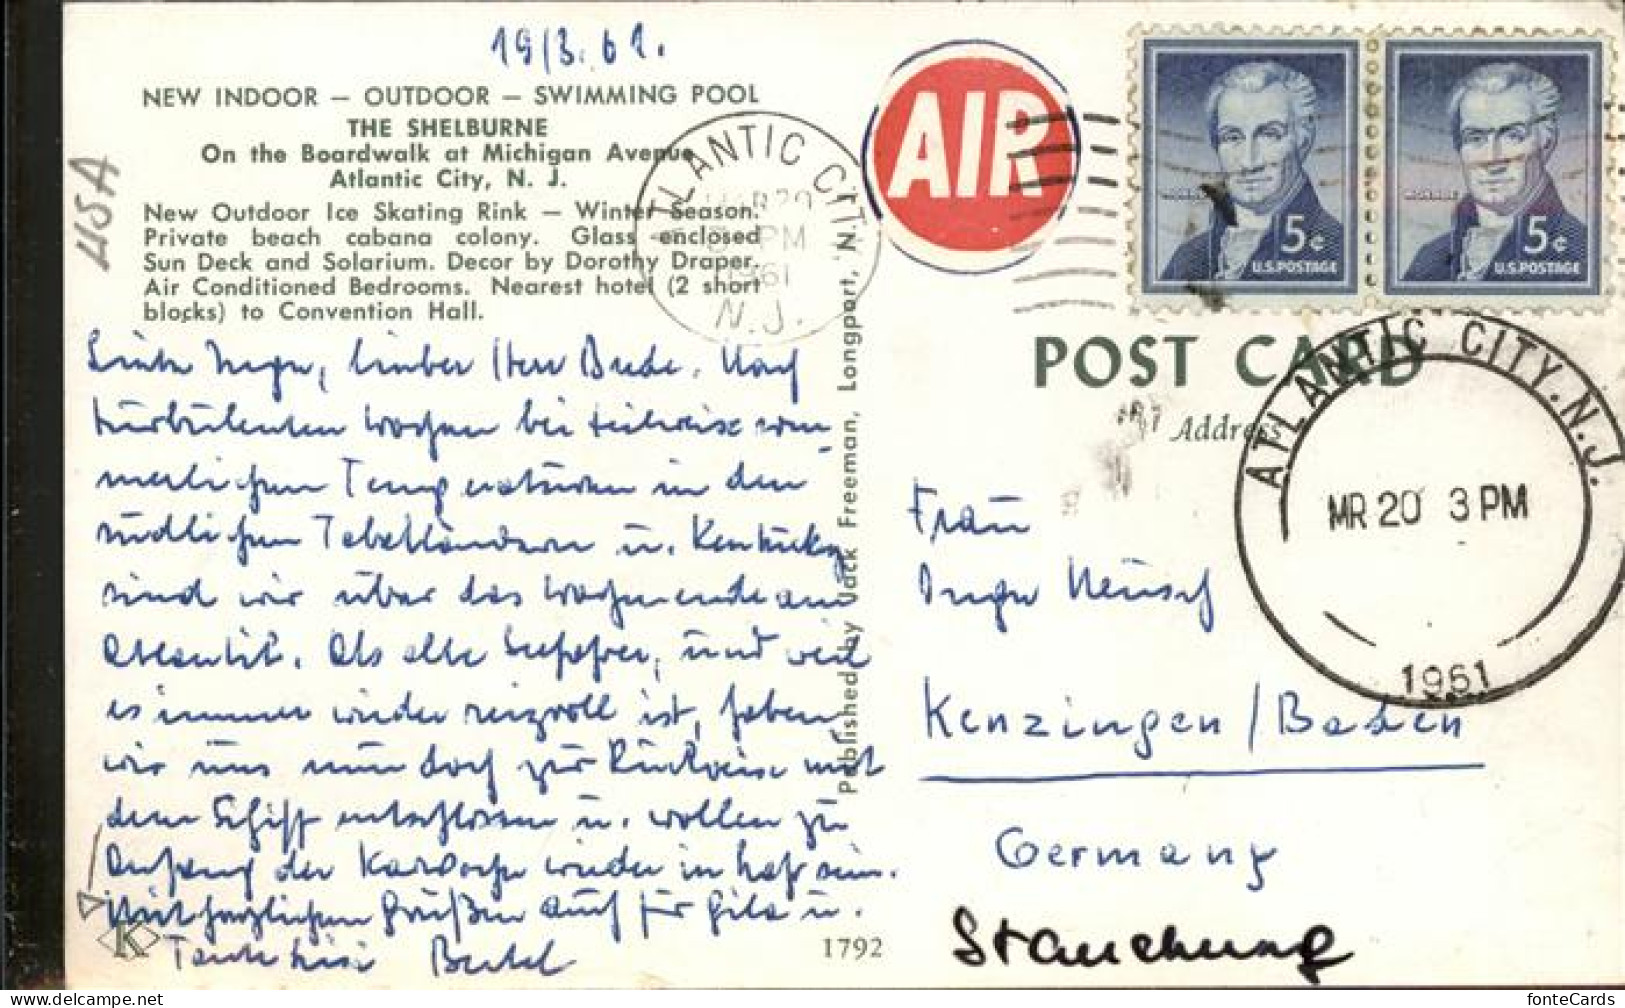 19/3.61.
NEW INDOOR – OUTDOOR – SWIMMING POOL
THE SHELBURNE
On the Boardwalk at Michigan Avenue
Atlantic City, N. J.
New Outdoor Ice Skating Rink – Winter Season.
Private beach cabana colony. Glass enclosed
Sun Deck and Solarium. Decor by Dorothy Draper.
Air Conditioned Bedrooms. Nearest hotel (2 short
blocks) to Convention Hall.
USA
ATLANTIC CITY, N.J.
MAR 20
PM
1961
AIR
5¢
U.S.POSTAGE
5¢
U.S.POSTAGE
Liebe Inge, lieber Herr Bude. Nach
turbulenten Wochen bei teilweise som-
merlichen Temperaturen in den
südlichen Tabakländern u. Kentucky
sind wir über das Wochenende am
Atlantik. Als alte Seefahrer, und weil
es immer wieder reizvoll ist, haben
wir uns nun doch zur Rückreise mit
dem Schiff entschlossen u. wollen zu
Anfang der Karwoche wieder in
Mit herzlichen Grüßen auch für Gila u.
Tante
K
Published by Jack Freeman, Longport, N.J.
1792
POST CARD
Address
ATLANTIC CITY.N.J.
MR 20 3 PM
1961
Frau
Inge
Kenzingen / Baden
Germany
Stauchung
fonteCards